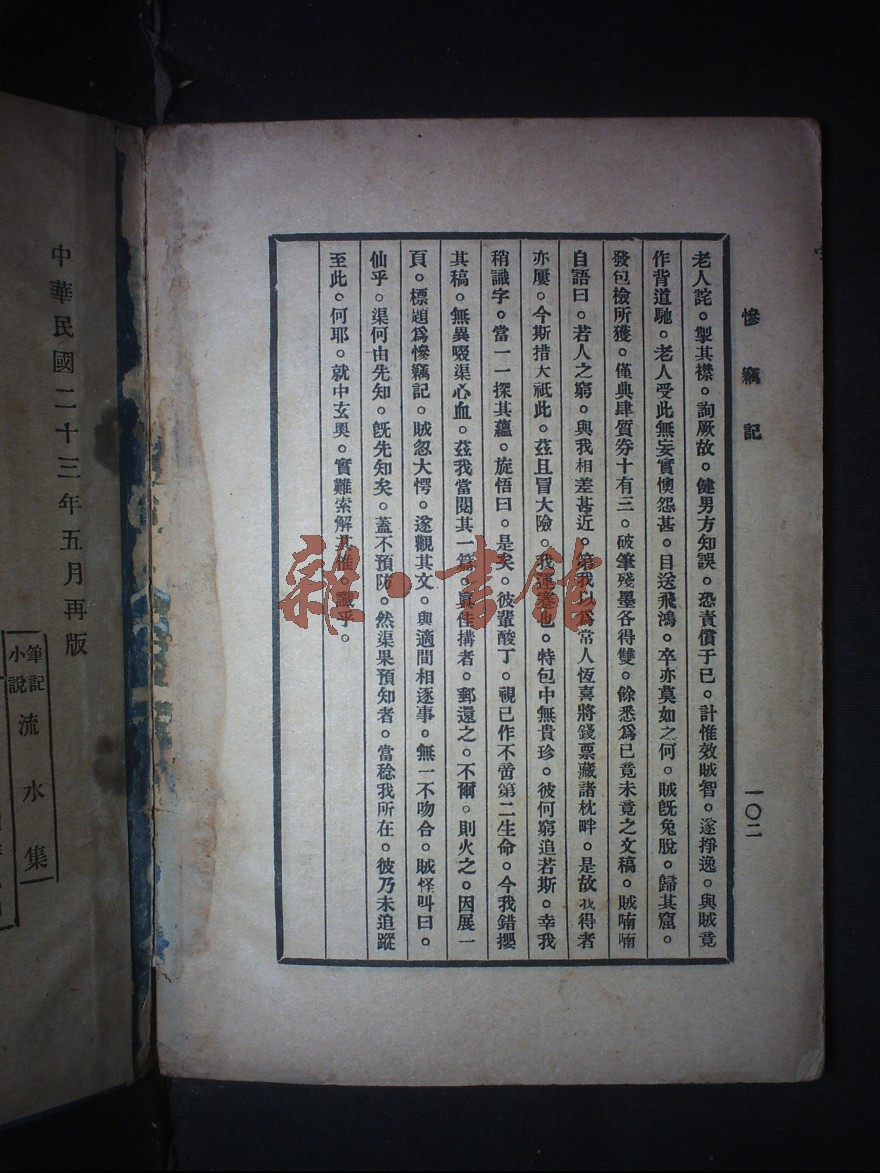 慘竊記
一〇二
老人詫。掣其襟。詢厥故。健男方知誤。恐責償于已。計惟效賊智。遂掙逸。與賊竟
作背道馳。老人受此無妄實懊怨甚。目送飛鴻。卒亦莫如之何。賊旣兔脫。歸其窟。
發包檢所獲。僅典肆質券十有三。破筆殘墨各得雙。餘悉爲已竟未竟之文稿。賊喃喃
自語曰。若人之窮。與我相差甚近。第我以爲常人恆喜將錢票藏諸枕畔。是故我得者
亦屢。今斯措大祇此。茲且冒大險。我運蹇也。特包中無貴珍。彼何窮追若斯。幸我
稍識字。當一一探其蘊。旋悟曰。是矣。彼輩酸丁。視已作不啻第二生命。今我錯攖
其稿。無異啜渠心血。茲我當閱其一篇。眞佳搆者。郵還之。不爾。則火之。因展一
頁。標題爲慘竊記。賊忽大愕。遂觀其文。與適間相逐事。無一不吻合。賊怪叫曰。
仙乎。渠何由先知。旣先知矣。蓋不預防。然渠果預知者。當稔我所在。彼乃未追蹤
至此。何耶。就中玄奧。實難索解其惟。讖乎。
中華民國二十三年五月再版
筆記
小說
流水集
雜·書館